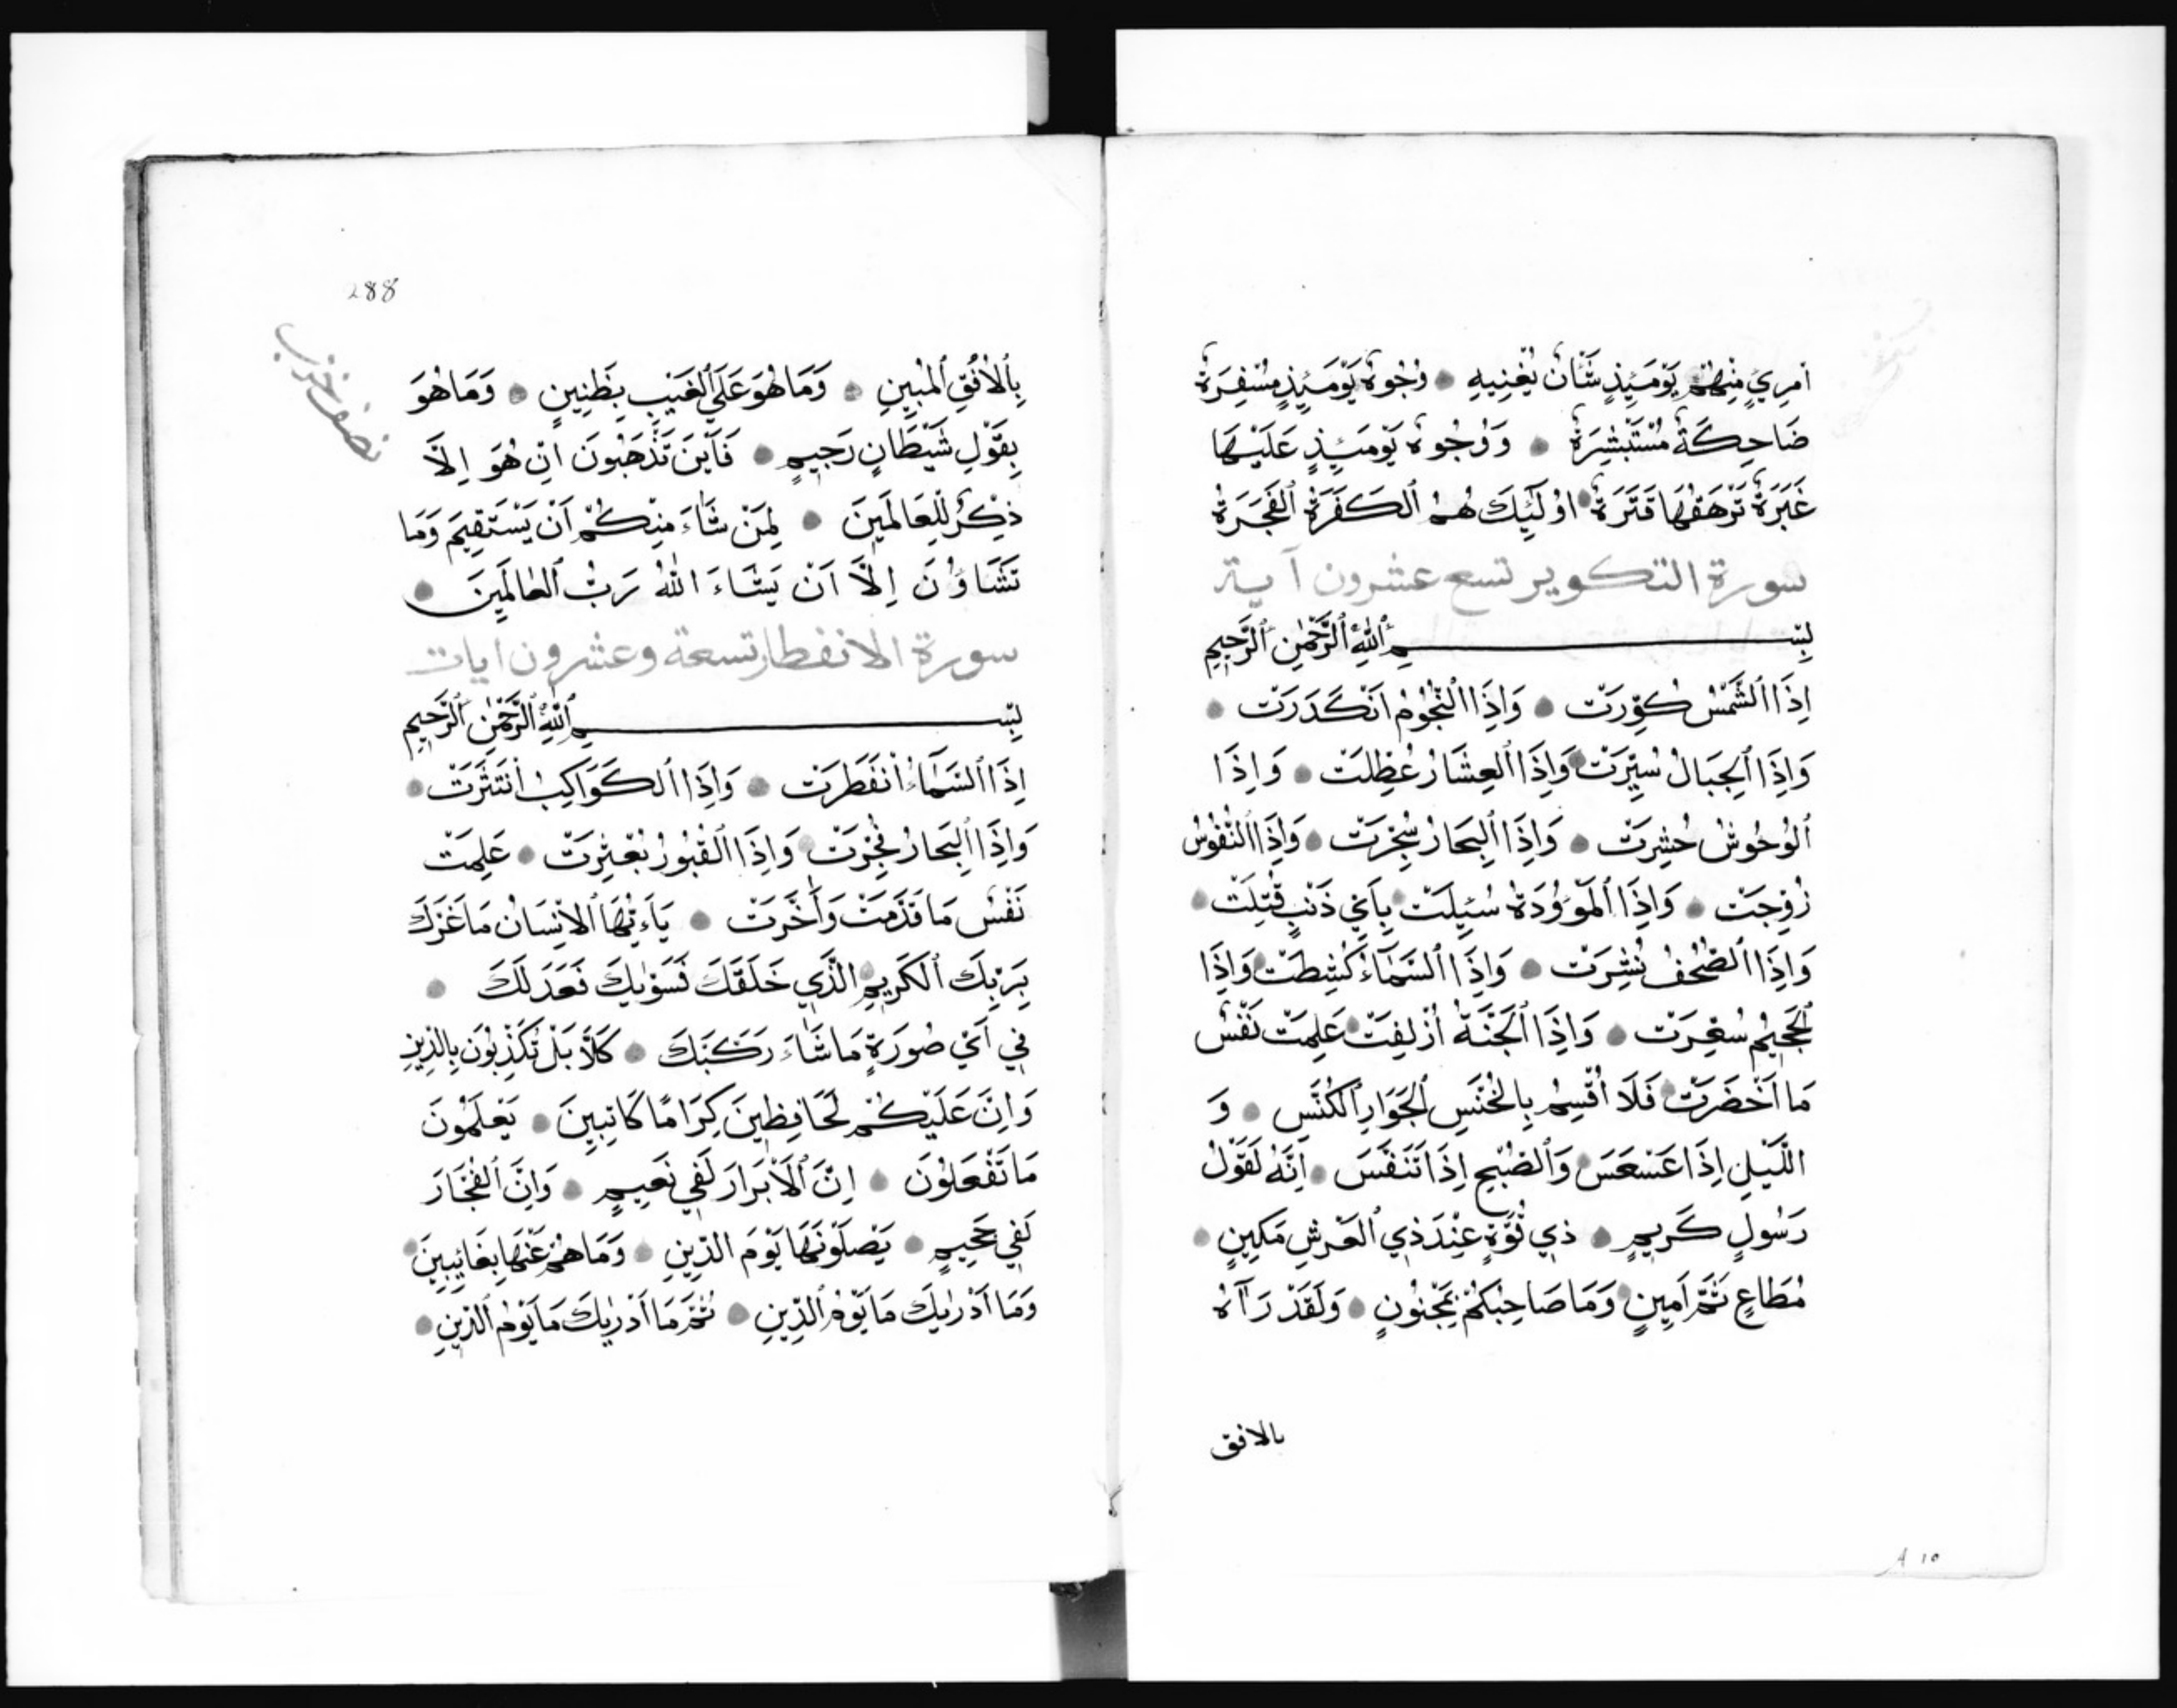 اَمْرِئٍ مِنْهُمْ يَوْمَئِذٍ شَأْنٌ يُغْنِيهِ وُجُوهٌ يَوْمَئِذٍ مُسْفِرَةٌ
ضَاحِكَةٌ مُسْتَبْشِرَةٌ وَوُجُوهٌ يَوْمَئِذٍ عَلَيْهَا
غَبَرَةٌ تَرْهَقُهَا قَتَرَةٌ اُولَٓئِكَ هُمُ ٱلْكَفَرَةُ ٱلْفَجَرَةُ
سورة التكوير تسع عشرون آية
بِسْمِ ٱللّٰهِ ٱلرَّحْمٰنِ ٱلرَّحِيمِ
اِذَا ٱلشَّمْسُ كُوِّرَتْ وَاِذَا ٱلنُّجُومُ اَنْكَدَرَتْ
وَاِذَا ٱلْجِبَالُ سُيِّرَتْ وَاِذَا ٱلْعِشَارُ عُطِّلَتْ وَاِذَا
ٱلْوُحُوشُ حُشِرَتْ وَاِذَا ٱلْبِحَارُ سُجِّرَتْ وَاِذَا ٱلنُّفُوسُ
زُوِّجَتْ وَاِذَا ٱلْمَوْؤُدَةُ سُئِلَتْ بِاَيِّ ذَنْبٍ قُتِلَتْ
وَاِذَا ٱلصُّحُفُ نُشِرَتْ وَاِذَا ٱلسَّمَآءُ كُشِطَتْ وَاِذَا
ٱلْجَحِيمُ سُعِّرَتْ وَاِذَا ٱلْجَنَّةُ اُزْلِفَتْ عَلِمَتْ نَفْسٌ
مَا اَحْضَرَتْ فَلَا اُقْسِمُ بِالْخُنَّسِ ٱلْجَوَارِ ٱلْكُنَّسِ وَ
اللَّيْلِ اِذَا عَسْعَسَ وَٱلصُّبْحِ اِذَا تَنَفَّسَ اِنَّهُ لَقَوْلُ
رَسُولٍ كَرِيمٍ ذِي قُوَّةٍ عِنْدَ ذِي ٱلْعَرْشِ مَكِينٍ
مُطَاعٍ ثَمَّ اَمِينٍ وَمَا صَاحِبُكُمْ بِمَجْنُونٍ وَلَقَدْ رَآهُ
بالافق
A 10
288
نصف حزب
بِٱلْاُفُقِ ٱلْمُبِينِ وَمَا هُوَ عَلَي ٱلْغَيْبِ بِظَنِينٍ وَمَا هُوَ
بِقَوْلِ شَيْطَانٍ رَجِيمٍ فَاَيْنَ تَذْهَبُونَ اِنْ هُوَ اِلَّا
ذِكْرٌ لِلْعَالَمِينَ لِمَنْ شَاءَ مِنْكُمْ اَنْ يَسْتَقِيمَ وَمَا
تَشَاؤُنَ اِلَّا اَنْ يَشَاءَ اللّٰهُ رَبُّ ٱلْعَالَمِينَ
سورة الانفطار تسعة وعشرون ايات
بِسْمِ ٱللّٰهِ ٱلرَّحْمٰنِ ٱلرَّحِيمِ
اِذَا ٱلسَّمَآءُ اَنْفَطَرَتْ وَاِذَا ٱلْكَوَاكِبُ اَنْتَثَرَتْ
وَاِذَا ٱلْبِحَارُ فُجِّرَتْ وَاِذَا ٱلْقُبُورُ بُعْثِرَتْ عَلِمَتْ
نَفْسٌ مَا قَدَّمَتْ وَاَخَّرَتْ يَآءَيُّهَا ٱلْاِنْسَانُ مَا غَرَّكَ
بِرَبِّكَ ٱلْكَرِيمِ الَّذِي خَلَقَكَ فَسَوّٰيكَ فَعَدَلَكَ
فِي اَيِّ صُورَةٍ مَا شَاءَ رَكَّبَكَ كَلَّا بَلْ تُكَذِّبُونَ بِالدِّينِ
وَاِنَّ عَلَيْكُمْ لَحَافِظِينَ كِرَامًا كَاتِبِينَ يَعْلَمُونَ
مَا تَفْعَلُونَ اِنَّ ٱلْاَبْرَارَ لَفِي نَعِيمٍ وَاِنَّ ٱلْفُجَّارَ
لَفِي جَحِيمٍ يَصْلَوْنَهَا يَوْمَ الدِّينِ وَمَا هُمْ عَنْهَا بِغَائِبِينَ
وَمَا اَدْرٰيكَ مَا يَوْمُ ٱلدِّينِ ثُمَّ مَا اَدْرٰيكَ مَا يَوْمُ ٱلدِّينِ